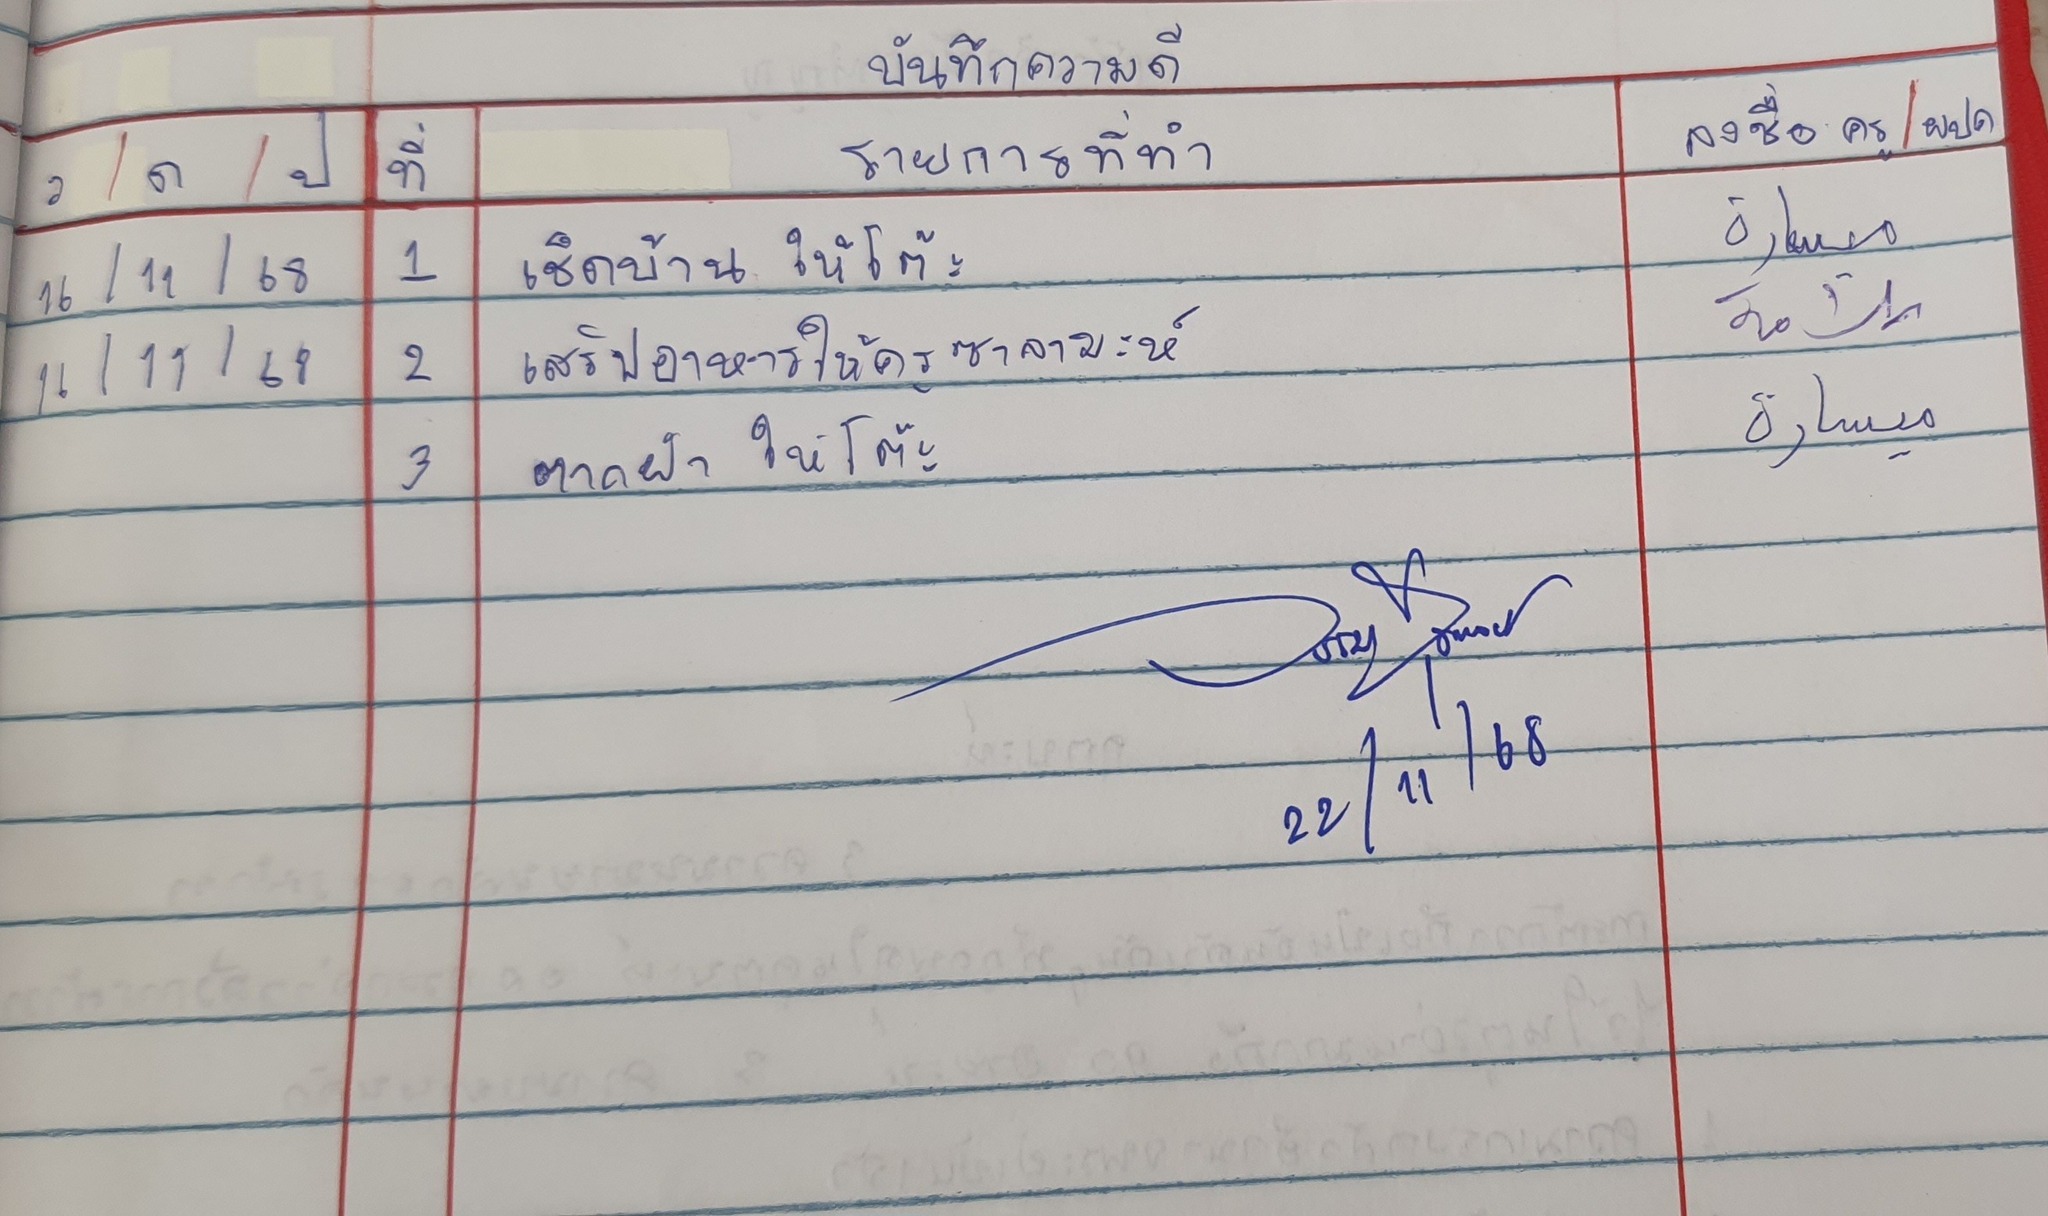 บันทึกความดี
ว / ด / ป ที่ รายการที่ทำ ลงชื่อ ครู / ผปค
16 / 11 / 68 1 เช็ดบ้าน ให้โต๊ะ
16 / 11 / 68 2 เสริปอาหารให้ครูซาลามะห์
3 ตากผ้า ให้โต๊ะ
22 / 11 / 68